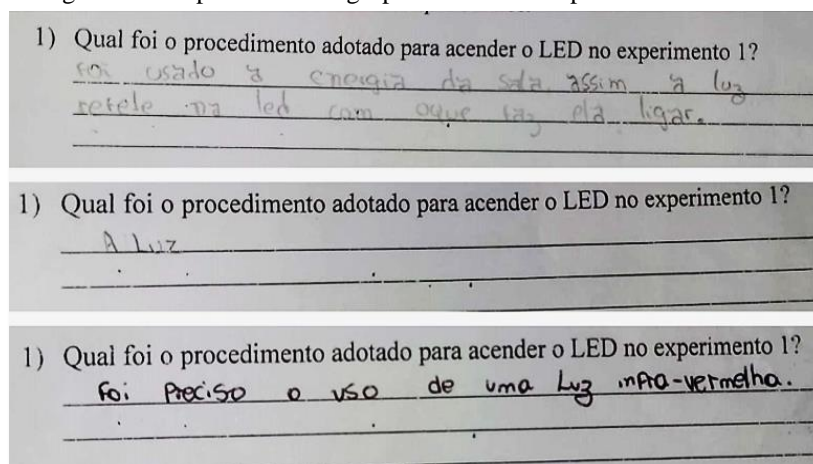 1) Qual foi o procedimento adotado para acender o LED no experimento 1?
foi usado a energia da sala assim a luz
refele na led com oque faz ela ligar.
1) Qual foi o procedimento adotado para acender o LED no experimento 1?
A Luz
1) Qual foi o procedimento adotado para acender o LED no experimento 1?
Foi Preciso o uso de uma Luz infra-vermelha.